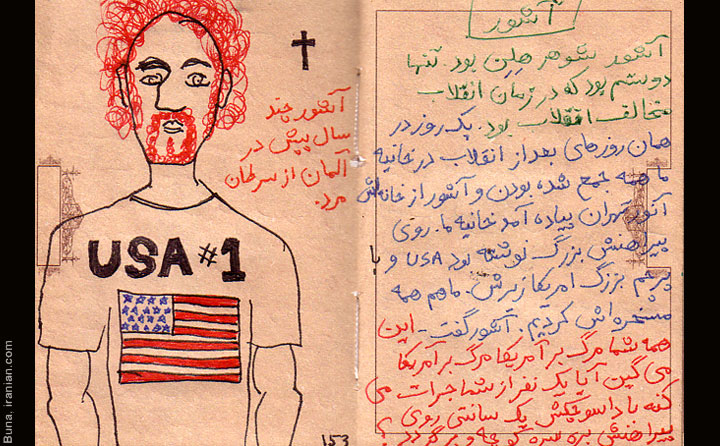 آشور چند
سال پیش در
آلمان از سرطان
مرد.
USA #1
153
آشور
آشور شوهر هلن بود. تنها
دوستم بود که در زمان انقلاب
مخالف انقلاب بود. یک روز در
همان روزهای بعد از انقلاب در خانیه
ما همه جمع شده بودن و آشور از خانه‌اش
آنور تهران پیاده آمد خانیه ما. روی
پیراهنش بزرگ نوشته بود USA و
پرچم بزرگ امریکا زیرش. ما هم همه
مسخره‌اش کردیم. آشور گفت - این
همه شما مرگ بر آمریکا مرگ بر آمریکا
می گین آیا یک نفر از شما جرات می
کنه با داس و چکش یک سانتی روی
پیراهنش بره سر کوچه و برگرده؟
Buna, iranian.com